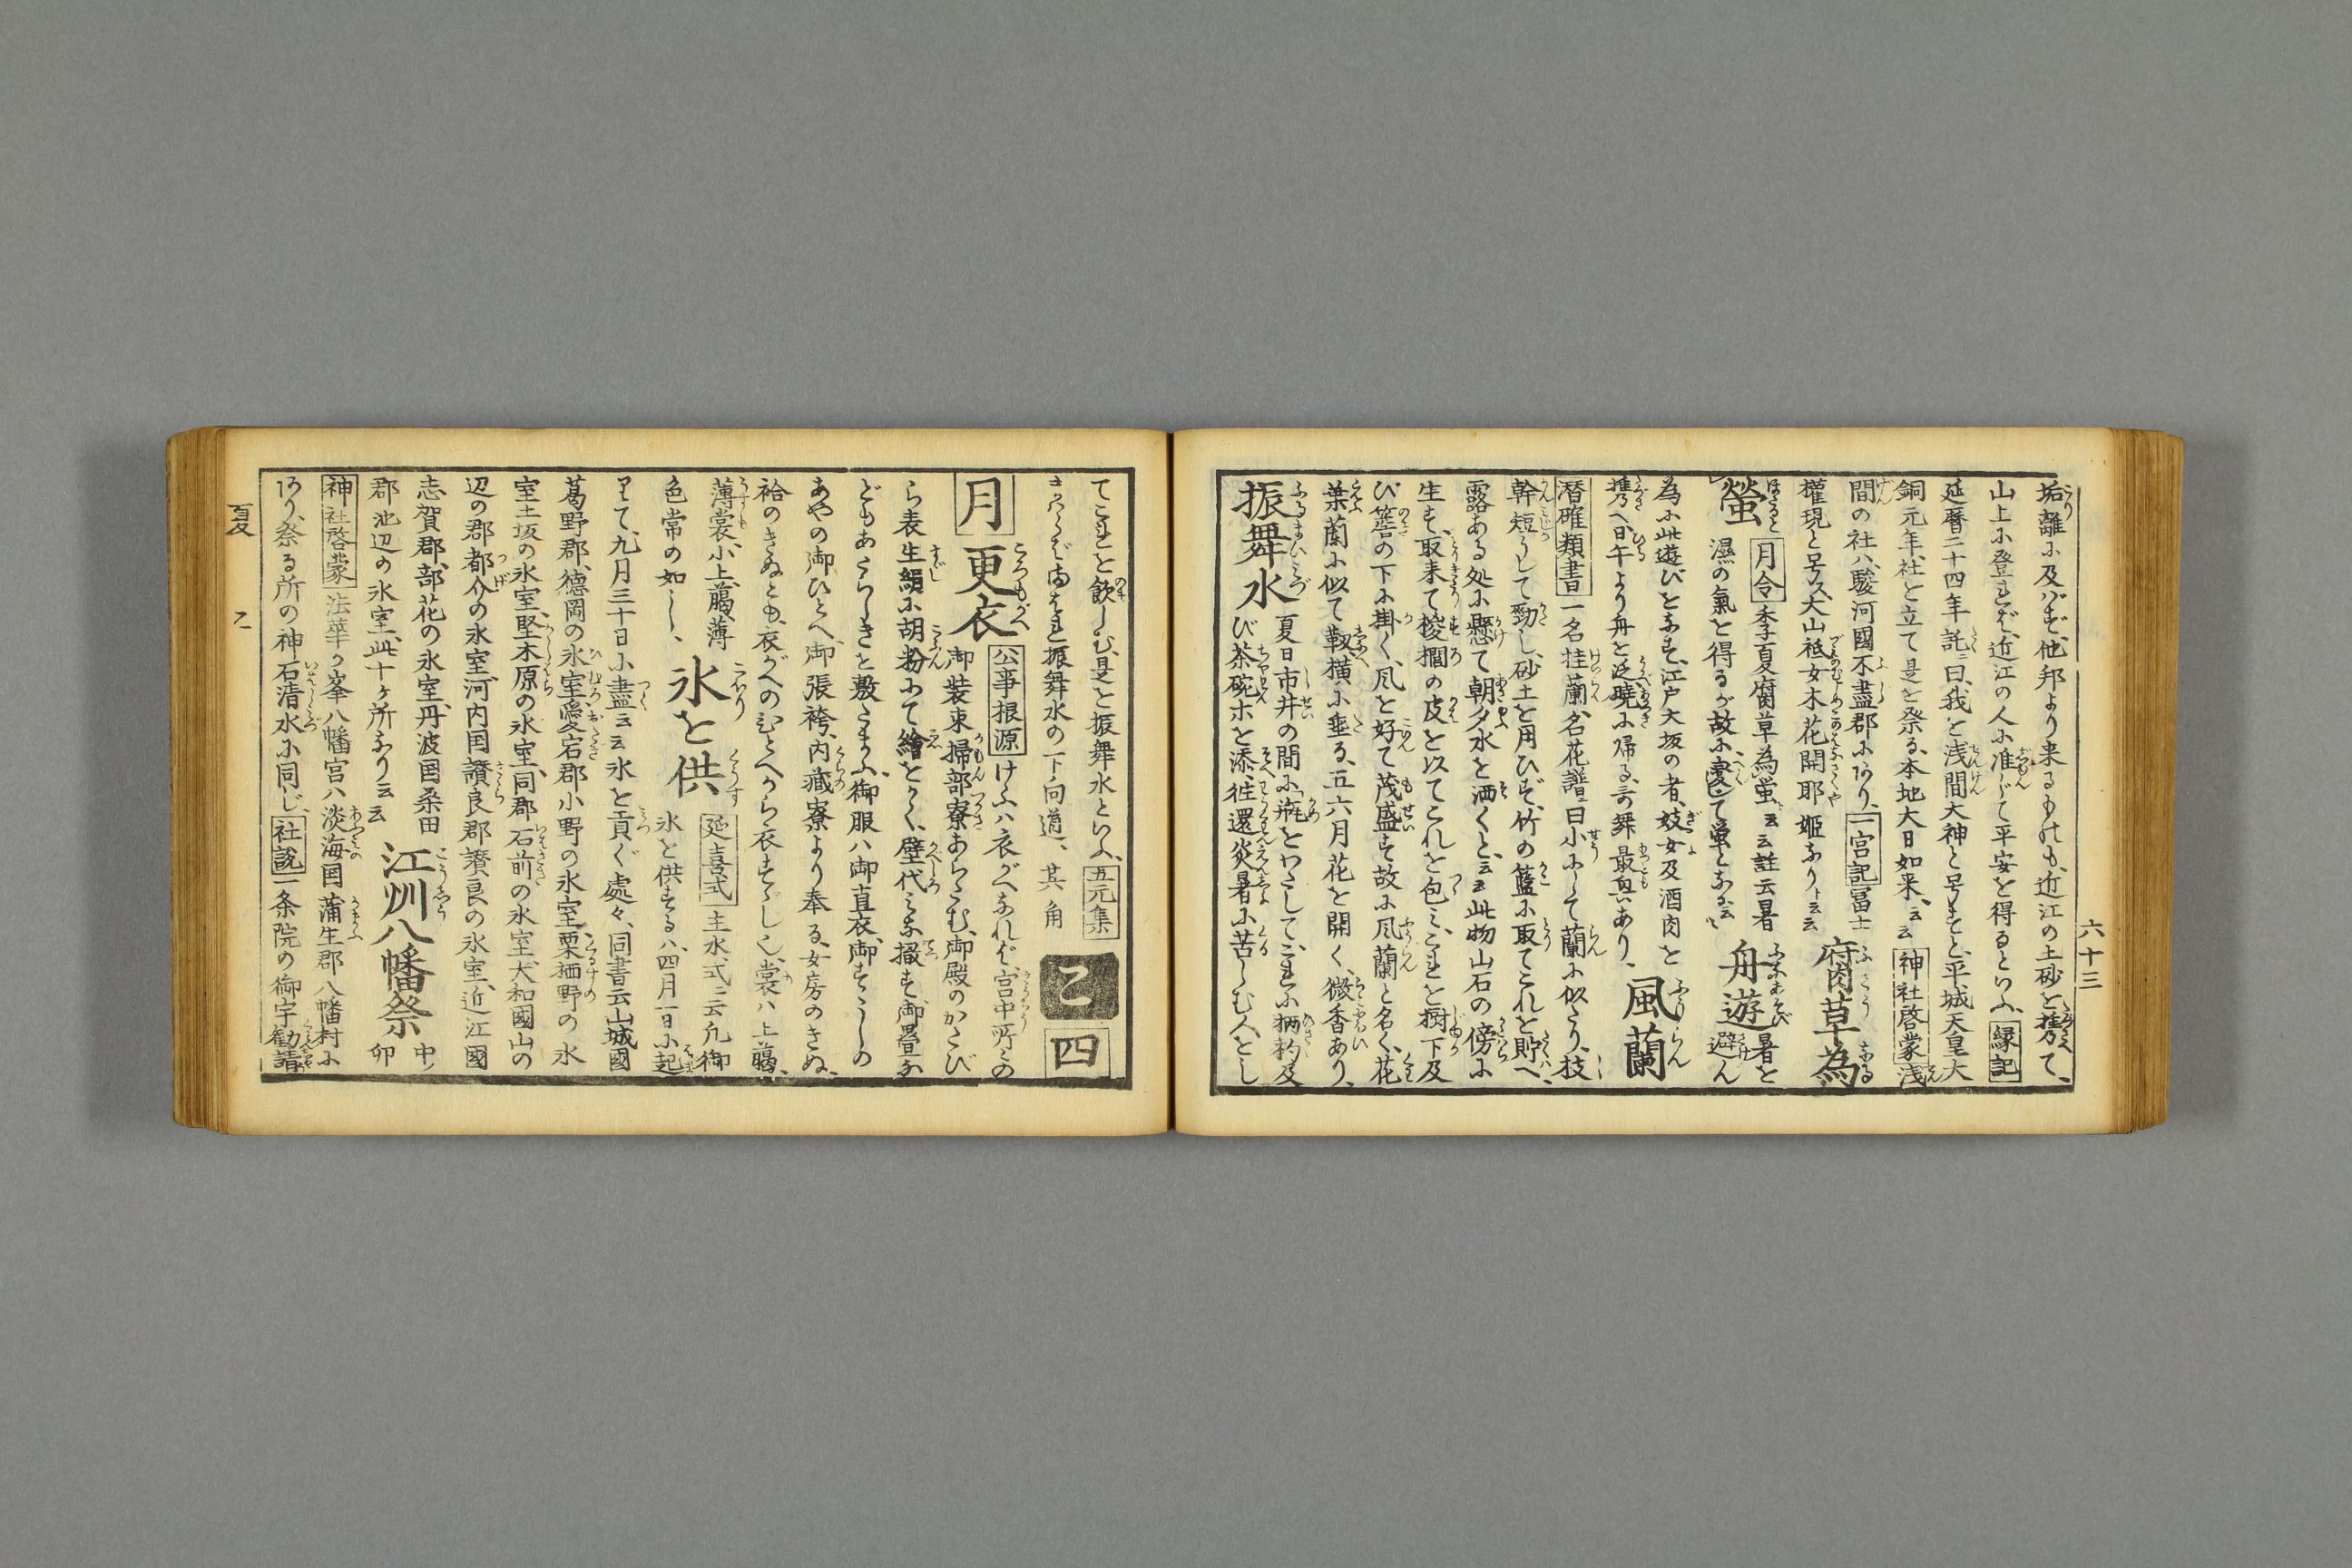 六十三
垢離に及ばず、他邦より来るものも、近江の土砂を携て、
山上に登れば、近江の人に准じて平安を得るといふ、縁記
延暦二十四年託ニ曰、我を浅間大神と号すと、平城天皇大
銅元年、社を立て是を祭る、本地大日如来、云云 神社啓蒙 浅
間の社ハ、駿河國不盡郡にあり、一宮記 冨士
權現と号ス、大山祇女木花開耶姫なり、云云 腐草為
螢 月令 季夏腐草為螢、云云 註云暑
濕の氣を得るが故に変じて螢となる、云云 舟遊 暑を避ん
為に此遊びをなす、江戸大坂の者、妓女及酒肉を
携へ、日午より舟を泛、暁に帰る、哥舞最興あり、 風蘭
潜確類書 一名挂蘭、名花譜ニ曰、小にして蘭に似たり、枝
幹短うして勁し、砂土を用ひず、竹の籃に取てこれを貯へ、
露ある処に懸て朝夕水を洒くと、云云 此物山石の傍に
生ず、取来て椶櫚の皮を以てこれを包ミ、これを樹下及
び簷の下に掛く、風を好て茂盛す、故に風蘭と名く、花
葉蘭に似て靱、横に垂る、五六月花を開く、微香あり、
振舞水 夏日市井の間に、瓶をわたして、これに柄杓及
び茶碗ホを添、徃還炎暑に苦しむ人をし
てこれを飲しむ、是を振舞水といふ、五元集
さればこそあれ振舞水の下向道、 其角 乙 四
月 更衣 公事根源 けふハ衣がへなれば、宮中所々の
御装束、掃部寮あらたむ、御殿のかたび
ら表生絹に胡粉にて繪をかく、壁代みな撤す、御畳な
どもあたらしきを敷たまふ、御服ハ御直衣、御すゞしの
あやの御ひとへ、御張袴、内蔵寮より奉る、女房のきぬ、
袷のきぬとも、衣がへのひとへから衣すゞし也、裳ハ上﨟、
薄裳、小上﨟、薄
色常の如し、 氷を供 延喜式 主水式ニ云、凢御
氷を供する ハ、四月一日に起
りて、九月三十日に盡、云云 氷を貢ぐ處々、同書云、山城國
葛野郡、徳岡の氷室、愛宕郡小野の氷室、栗栖野の氷
室、土坂の氷室、堅木原の氷室、同郡石前の氷室、大和國山の
辺の郡都介の氷室、河内国讃良郡讃良の氷室、近江國
志賀郡、部花の氷室、丹波国桑田
郡池辺の氷室、此十ヶ所なり、云云 江州八幡祭 中ノ卯
神社啓蒙 法華ヶ峯八幡宮ハ、淡海国蒲生郡八幡村に
あり、祭る所の神石清水に同じ、社説 一条院の御宇勧請
夏 乙